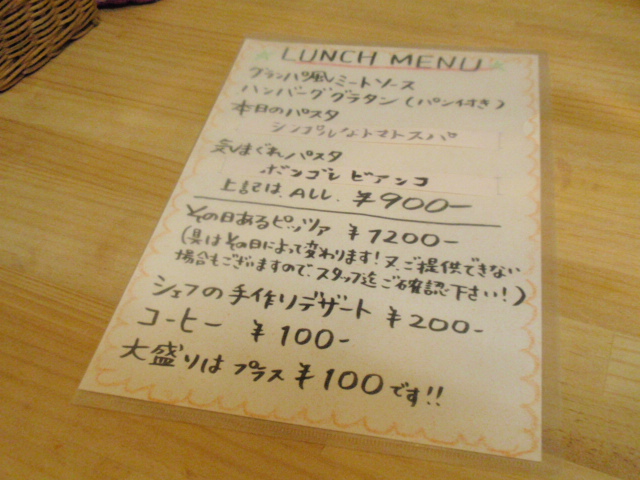 LUNCH MENU
グランパ風ミートソース
ハンバーググラタン(パン付き)
本日のパスタ
シンプルなトマトスパ
気まぐれパスタ
ボンゴレ ビアンコ
上記は、ALL. ¥900-
その日あるピッツァ ¥1200-
(具はその日によって変わります!又、ご提供できない
場合もございますので、スタッフ迄ご確認下さい!)
シェフの手作りデザート ¥200-
コーヒー ¥100-
大盛りはプラス¥100です!!